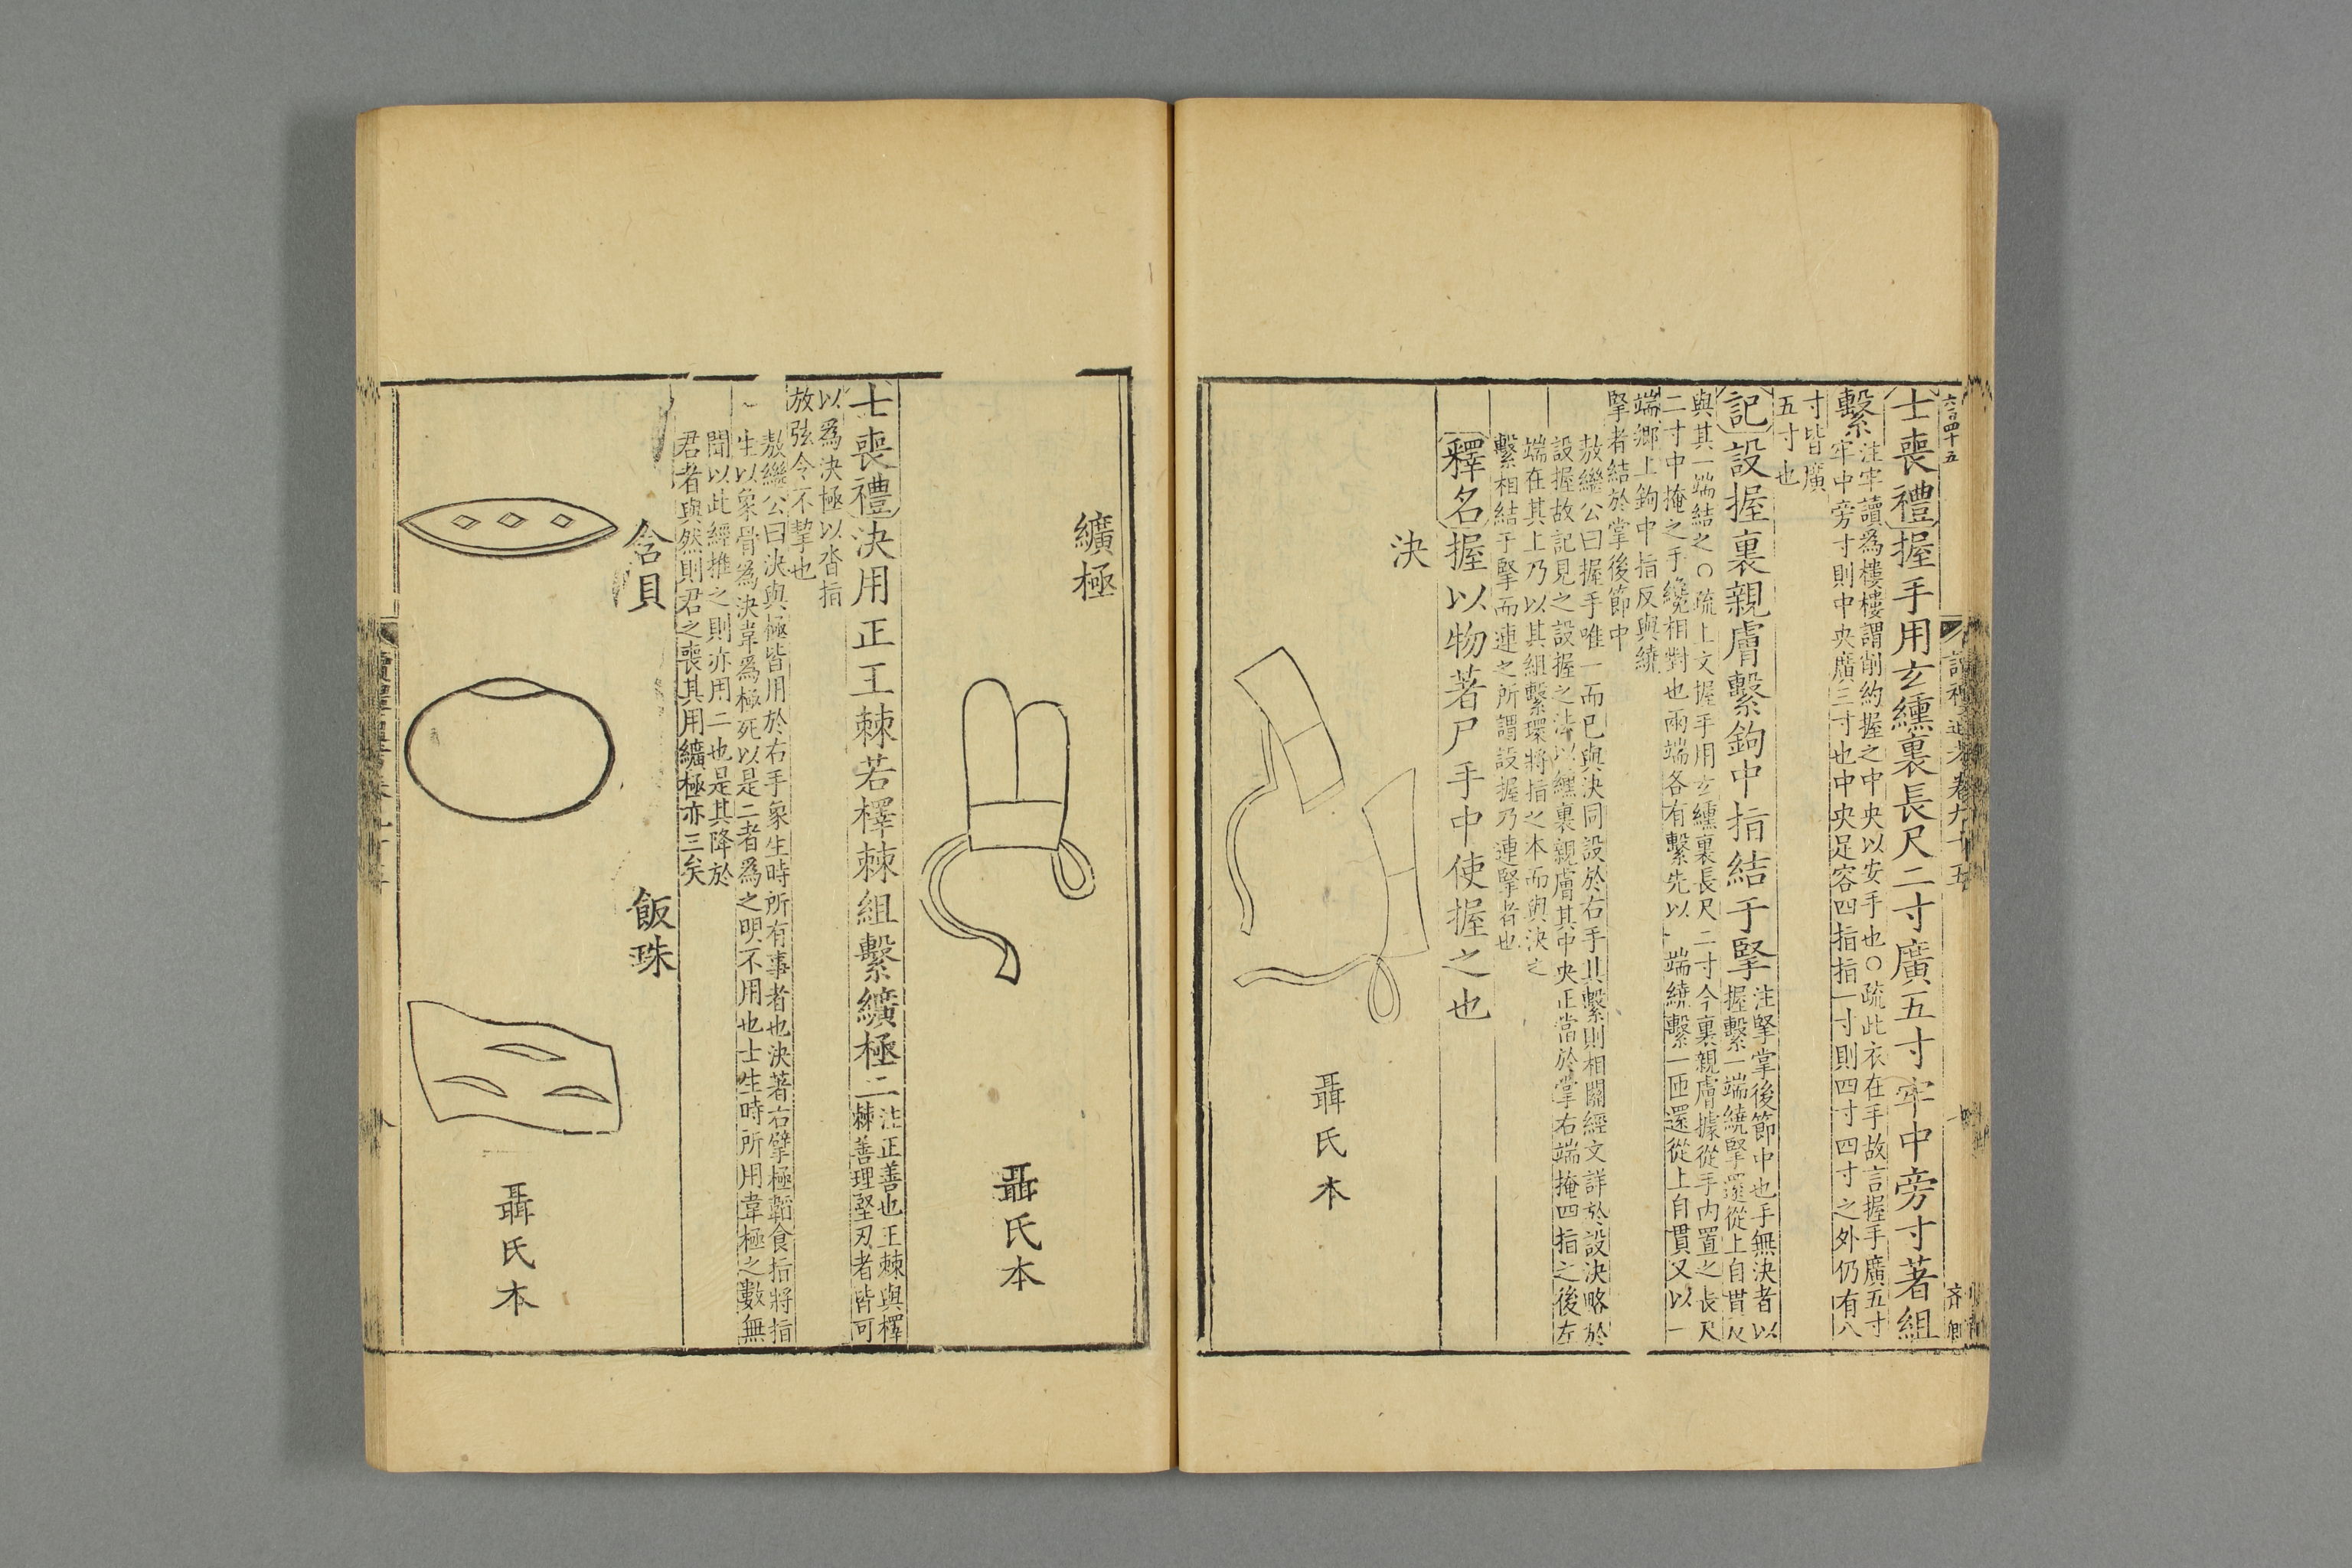 六百四十五
士喪禮握手用玄纁裏長尺二寸廣五寸牢中旁寸著組
繫
注牢讀爲樓樓謂削約握之中央以安手也○疏此衣在手故言握手廣五寸
牢中旁寸則中央廣三寸也中央足容四指指一寸則四寸四寸之外仍有八
寸皆廣
五寸也
記設握裏親膚繫鉤中指結于掔
注掔掌後節中也手無決者以
握繫一端繞掔還從上自貫反
與其一端結之○疏上文握手用玄纁裏長尺二寸今裏親膚據從手內置之長尺
二寸中掩之手纔相對也兩端各有繫先以一端繞繫一匝還從上自貫又以一
端鄉上鉤中指反與繞
掔者結於掌後節中
敖繼公曰握手唯一而已與決同設於右手其繫則相關經文詳於設決略於
設握故記見之設握之法以纁裏親膚其中央正當於掌右端掩四指之後左
端在其上乃以其組繫環將指之本而與決之
繫相結于掔而連之所謂設握乃連掔者也
釋名握以物著尸手中使握之也
決
聶氏本
讀禮通考卷九十五
齊卿
纊極
聶氏本
士喪禮決用正王棘若檡棘組繫纊極二
注正善也王棘與檡
棘善理堅刃者皆可
以爲決極以沓指
放弦令不挈也
敖繼公曰決與極皆用於右手象生時所有事者也決著右擘極韜食指將指
生以象骨爲決韋爲極死以是二者爲之明不用也士生時所用韋極之數無
聞以此經推之則亦用二也是其降於
君者與然則君之喪其用纊極亦三矣
含貝
飯珠
聶氏本